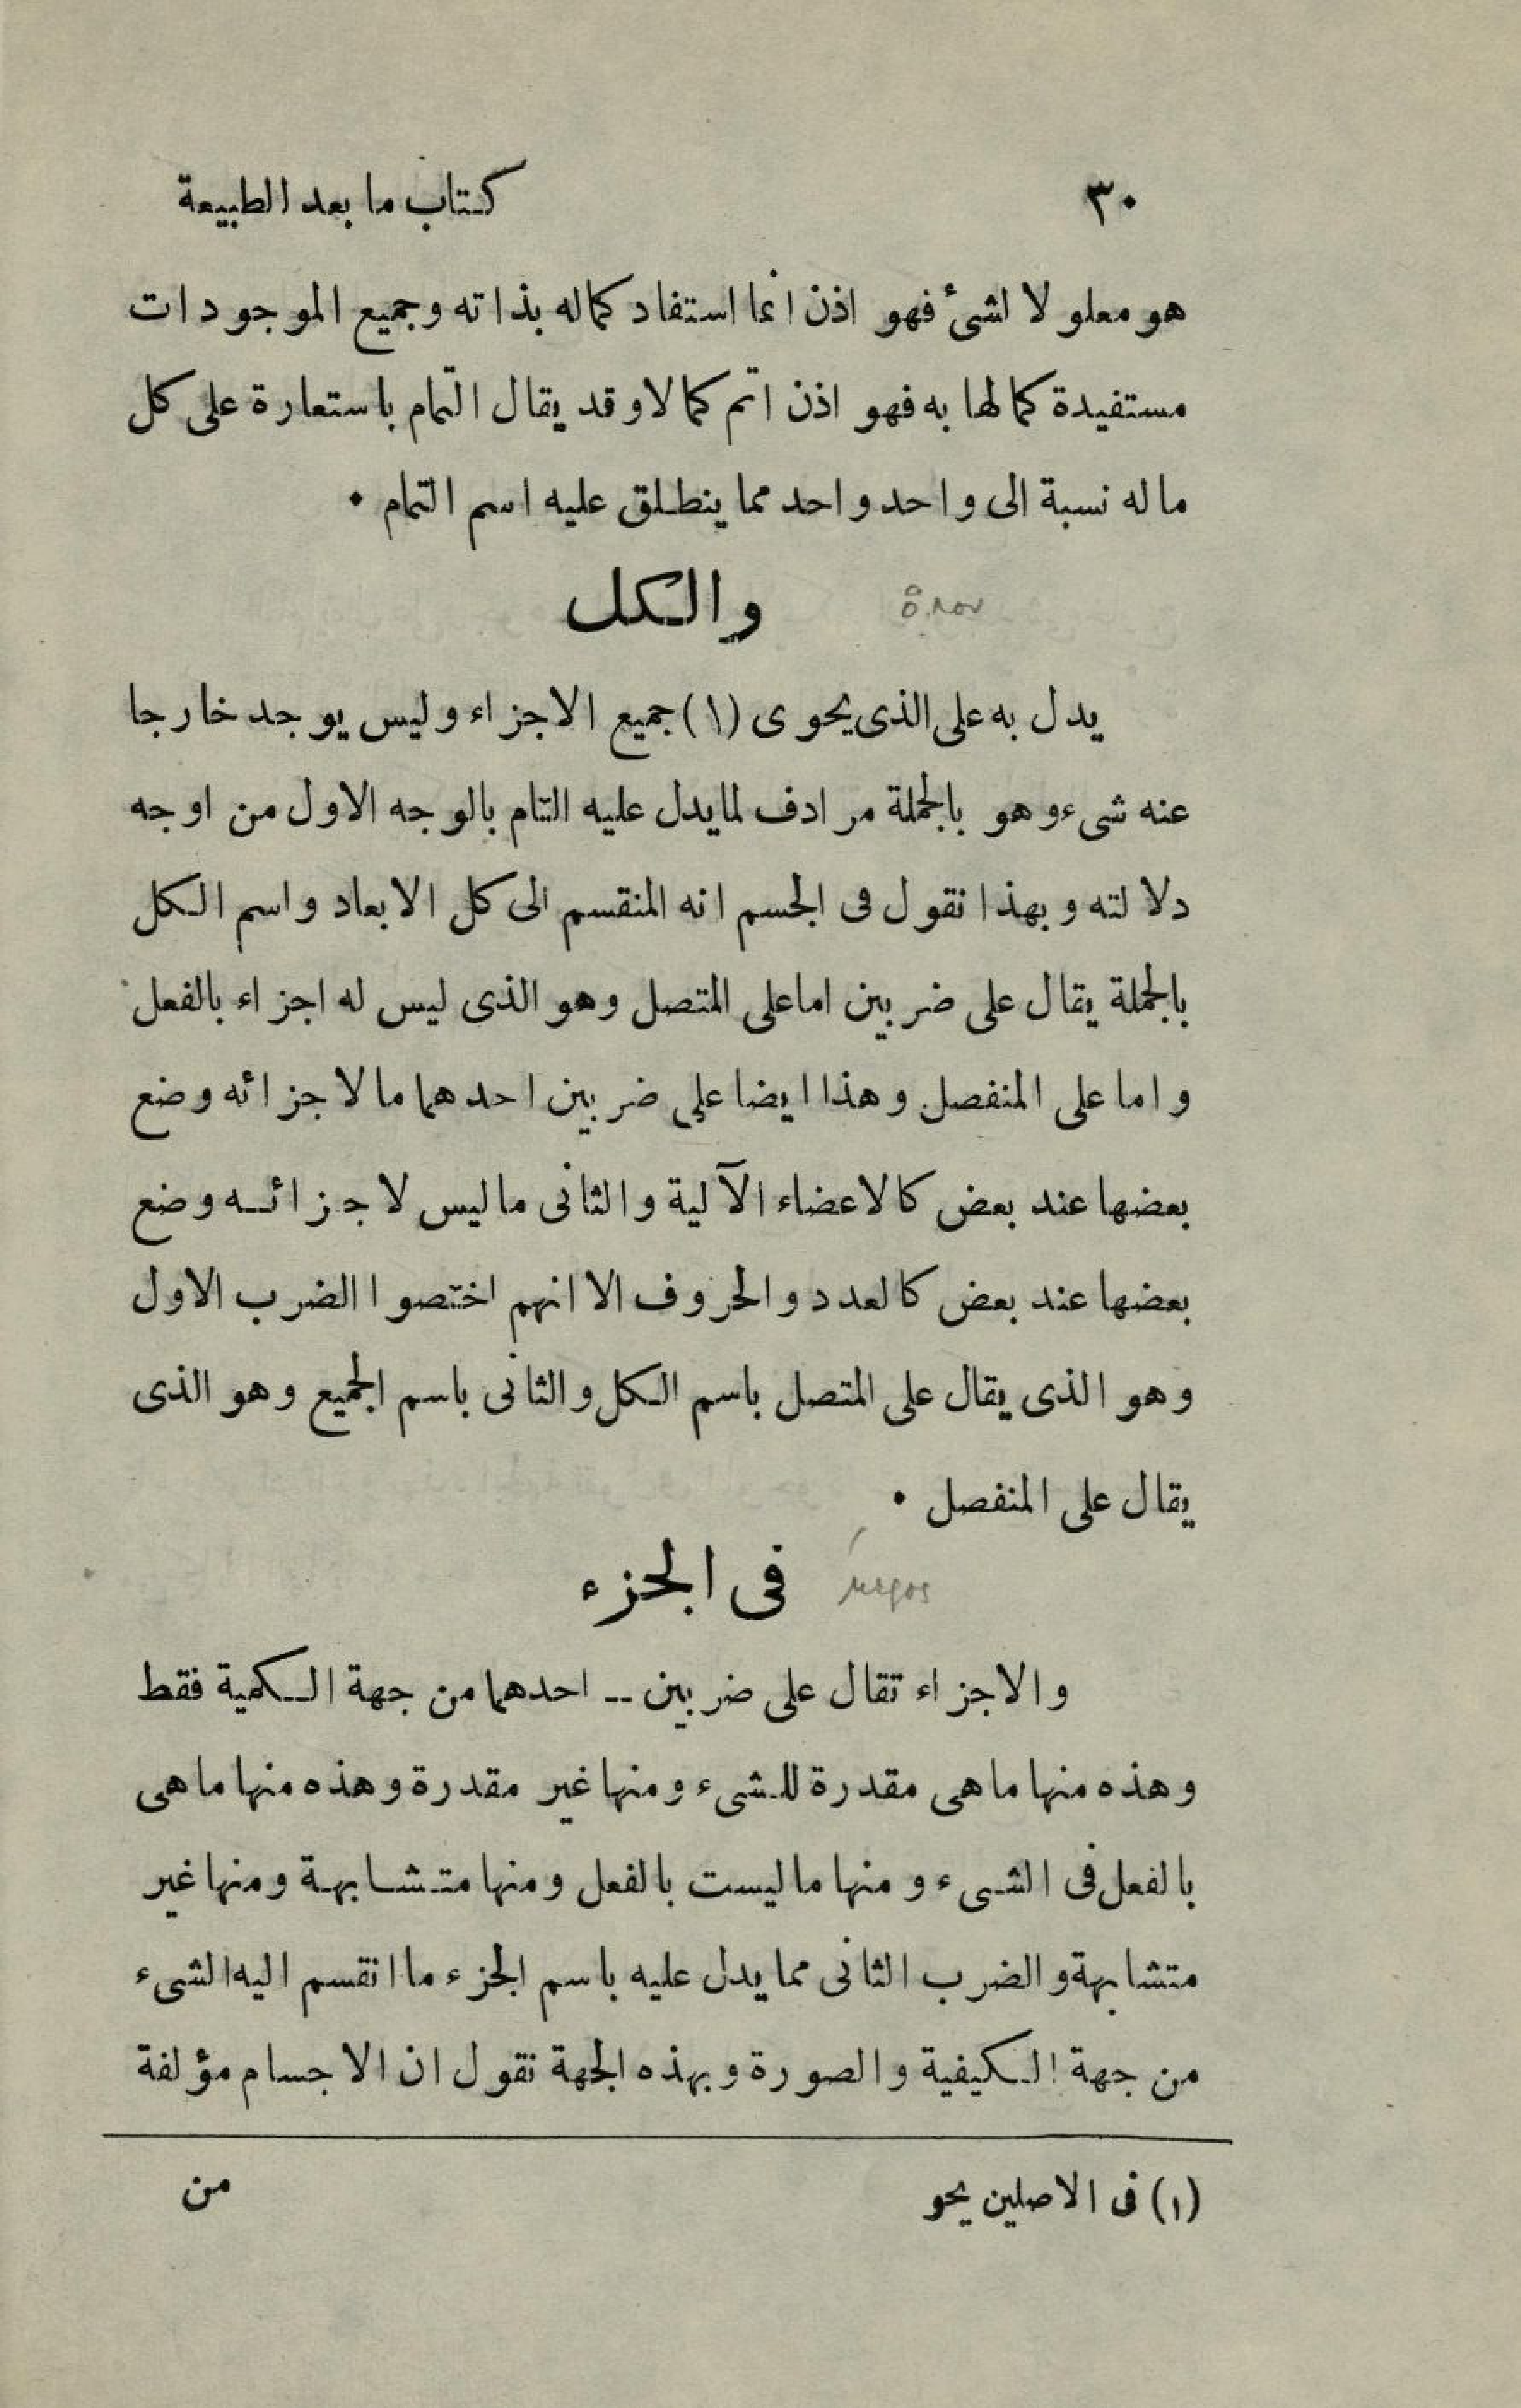 ٣٠ كتاب ما بعد الطبيعة
هو معلولا لشئ فهو اذن انما استفاد كماله بذاته وجميع الموجودات
مستفيدة كمالها به فهو اذن اتم كمالا وقد يقال التمام باستعارة على كل
ماله نسبة الى واحد واحد مما ينطلق عليه اسم التمام ٠
والكل
ὅλον
يدل به على الذى يحوى (١) جميع الاجزاء وليس يوجد خارجا
عنه شىء وهو بالجملة مرادف لما يدل عليه التام بالوجه الاول من اوجه
دلالته وبهذا نقول فى الجسم انه المنقسم الى كل الابعاد واسم الكل
بالجملة يقال على ضربين اما على المتصل وهو الذى ليس له اجزاء بالفعل
واما على المنفصل وهذا ايضا على ضربين احدهما ما لاجزائه وضع
بعضها عند بعض كالاعضاء الآلية والثانى ما ليس لاجزائه وضع
بعضها عند بعض كالعدد والحروف الا انهم اختصوا الضرب الاول
وهو الذى يقال على المتصل باسم الكل والثانى باسم الجميع وهو الذى
يقال على المنفصل ٠
فى الجزء
μέρος
والاجزاء تقال على ضربين -- احدهما من جهة الكمية فقط
وهذه منها ما هى مقدرة للشىء ومنها غير مقدرة وهذه منها ما هى
بالفعل فى الشىء ومنها ما ليست بالفعل ومنها متشابهة ومنها غير
متشابهة والضرب الثانى مما يدل عليه باسم الجزء ما انقسم اليه الشىء
من جهة الكيفية والصورة وبهذه الجهة نقول ان الاجسام مؤلفة
(١) فى الاصلين يحو من